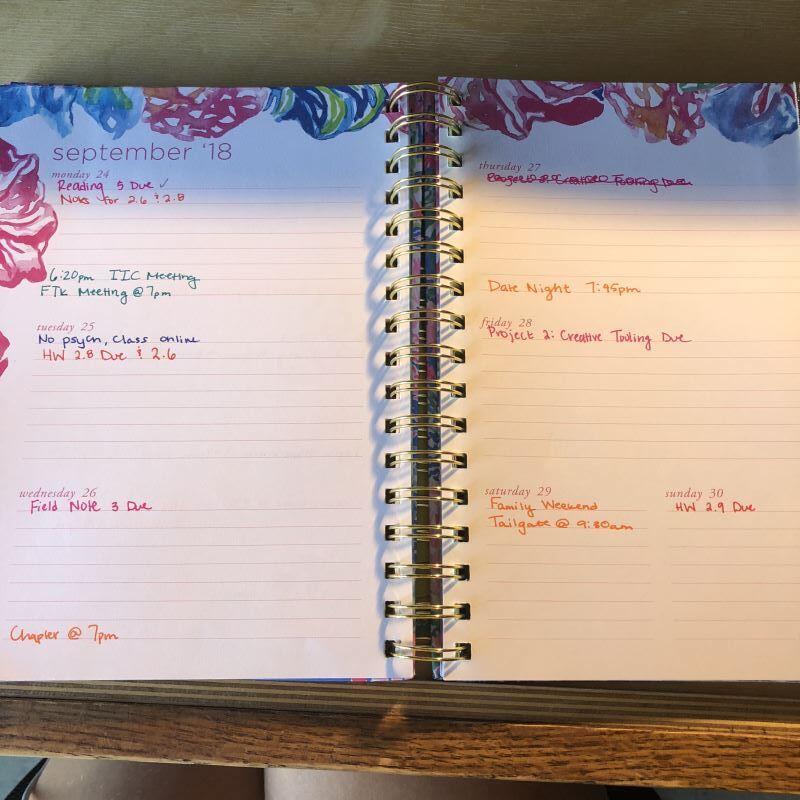 september '18
monday 24
Reading 5 Due ✓
Notes for 2.6 & 2.8
6:20pm IIC Meeting
FTK Meeting @ 7pm
tuesday 25
No psych, Class online
HW 2.8 Due & 2.6
wednesday 26
Field Note 3 Due
Chapter @ 7pm
thursday 27
Project 2: Creative Tooling Due
Date Night 7:45pm
friday 28
Project 2: Creative Tooling Due
saturday 29
Family Weekend
Tailgate @ 9:30am
sunday 30
HW 2.9 Due